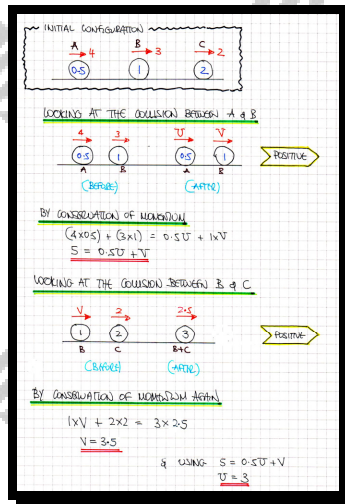 INITIAL CONFIGURATION
A B C
4 3 2
0.5 1 2
LOOKING AT THE COLLISION BETWEEN A & B
4 3 U V
0.5 1 0.5 1 POSITIVE
A B A B
(BEFORE) (AFTER)
BY CONSERVATION OF MOMENTUM
(4×0.5) + (3×1) = 0.5U + 1×V
5 = 0.5U + V
LOOKING AT THE COLLISION BETWEEN B & C
V 2 2.5
1 2 3 POSITIVE
B C B+C
(BEFORE) (AFTER)
BY CONSERVATION OF MOMENTUM AGAIN
1×V + 2×2 = 3×2.5
V = 3.5
& USING 5 = 0.5U + V
U = 3